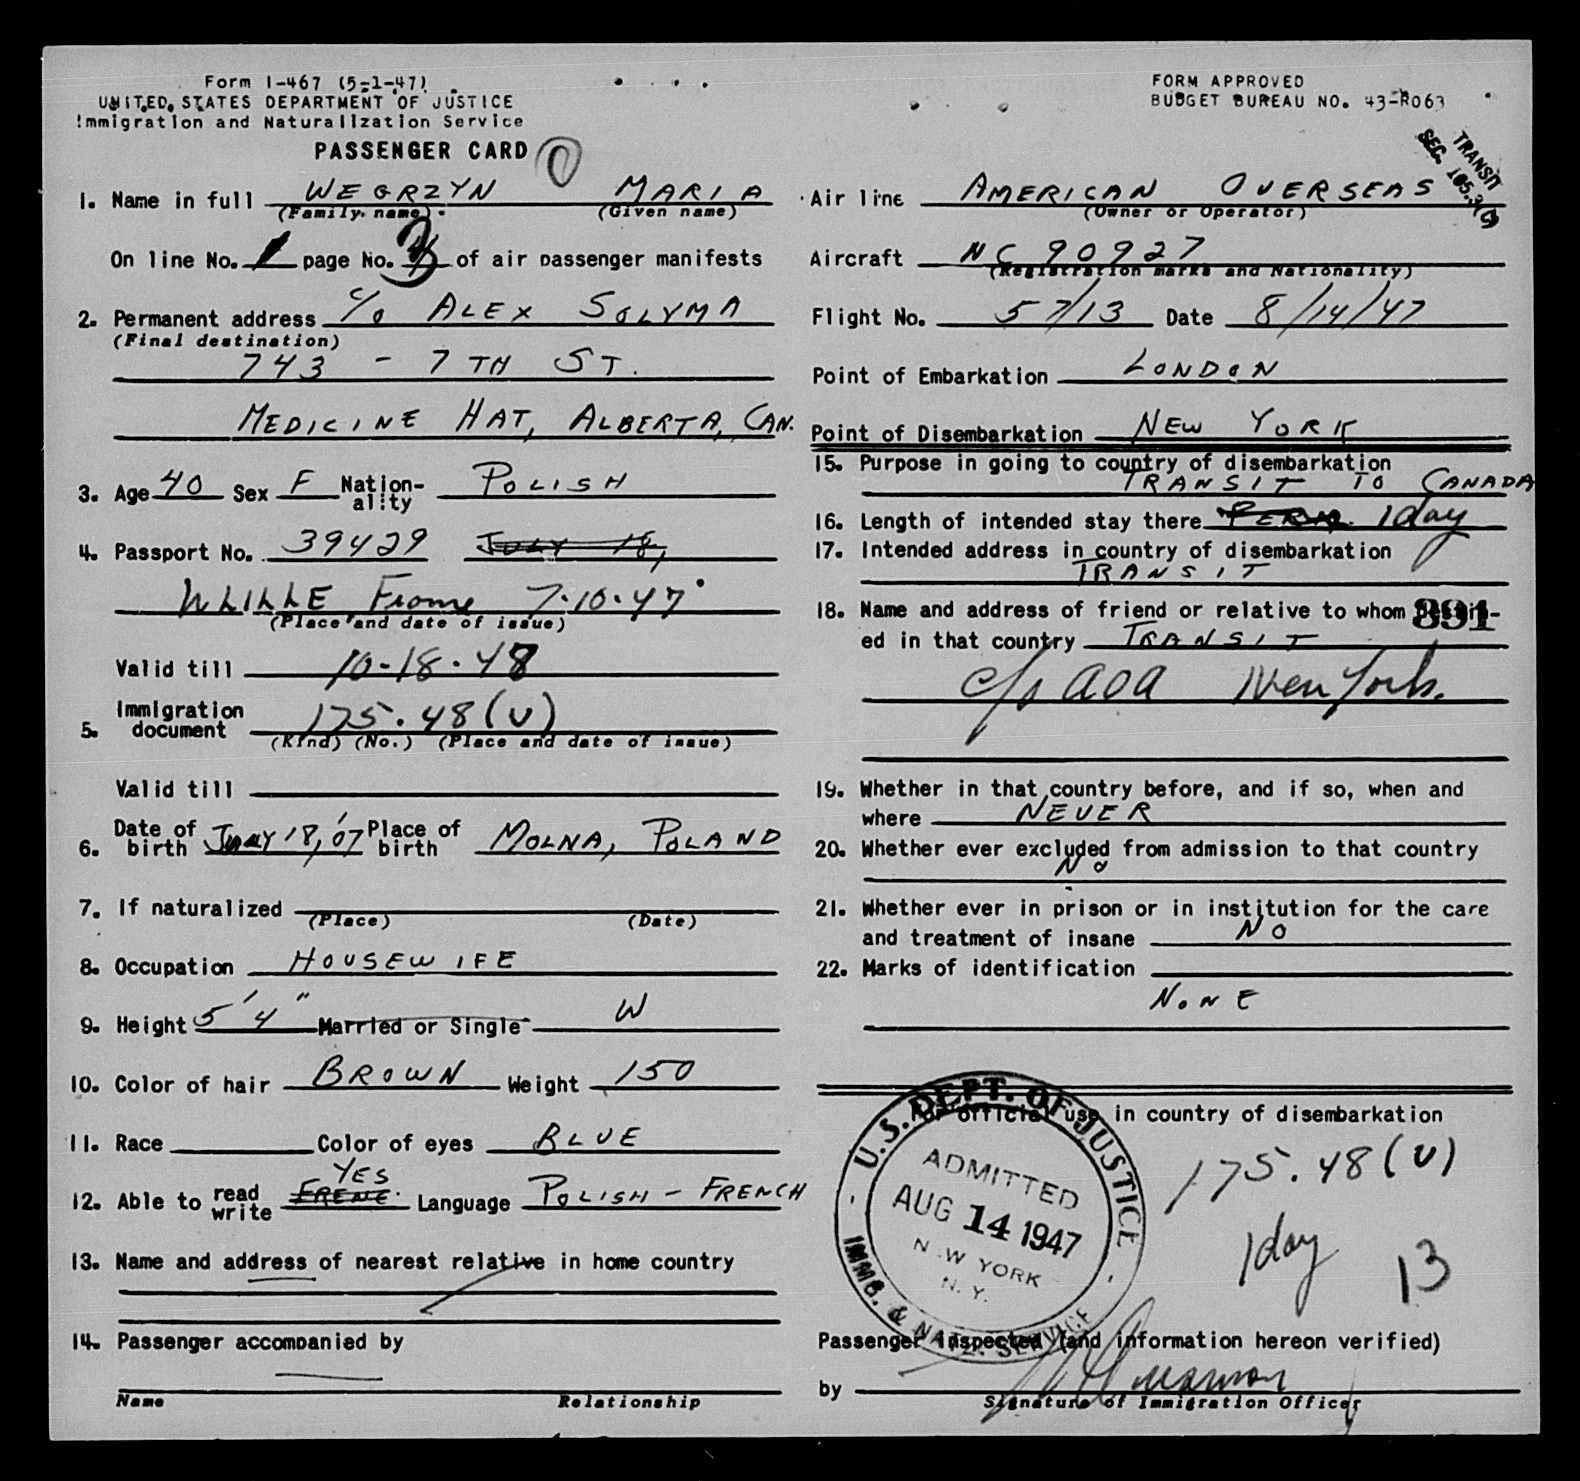 Form I-467 (5-1-47)
UNITED STATES DEPARTMENT OF JUSTICE
Immigration and Naturalization Service
PASSENGER CARD
FORM APPROVED
BUDGET BUREAU NO. 43-R063
TRANSIT
SEC. 105.3(C)
1. Name in full WEGRZYN MARIA
(Family name) (Given name)
On line No. 1 page No. 3 of air passenger manifests
2. Permanent address C/o ALEX SOLYMA
(Final destination)
743 - 7TH ST.
MEDICINE HAT, ALBERTA, CAN.
3. Age 40 Sex F Nation-ality POLISH
4. Passport No. 39429 JULY 18,
LILLE France 7.10.47
(Place and date of issue)
Valid till 10.18.48
5. Immigration document 175.48(U)
(Kind) (No.) (Place and date of issue)
Valid till
6. Date of birth 18,'07 Place of birth MOLNA, POLAND
7. If naturalized
(Place) (Date)
8. Occupation HOUSEWIFE
9. Height 5'4" Married or Single W
10. Color of hair BROWN Weight 150
11. Race Color of eyes BLUE
YES
12. Able to read write FRENC. Language POLISH - FRENCH
13. Name and address of nearest relative in home country
14. Passenger accompanied by
Name Relationship
Air line AMERICAN OVERSEAS
(Owner or Operator)
Aircraft NC 90927
(Registration marks and Nationality)
Flight No. 57/13 Date 8/14/47
Point of Embarkation LONDON
Point of Disembarkation NEW YORK
15. Purpose in going to country of disembarkation
TRANSIT TO CANADA
16. Length of intended stay there PERM. 1 day
17. Intended address in country of disembarkation
TRANSIT
18. Name and address of friend or relative to whom destin-
891
ed in that country TRANSIT
c/o AOA New York.
19. Whether in that country before, and if so, when and
where NEVER
20. Whether ever excluded from admission to that country
No
21. Whether ever in prison or in institution for the care
and treatment of insane NO
22. Marks of identification
NONE
For official use in country of disembarkation
U.S. DEPT. OF JUSTICE
ADMITTED
AUG 14 1947
NEW YORK
N.Y.
IMMG. & NATZ. SERVICE
175.48(U)
1 day 13
Passenger inspected (and information hereon verified)
by
Signature of Immigration Officer